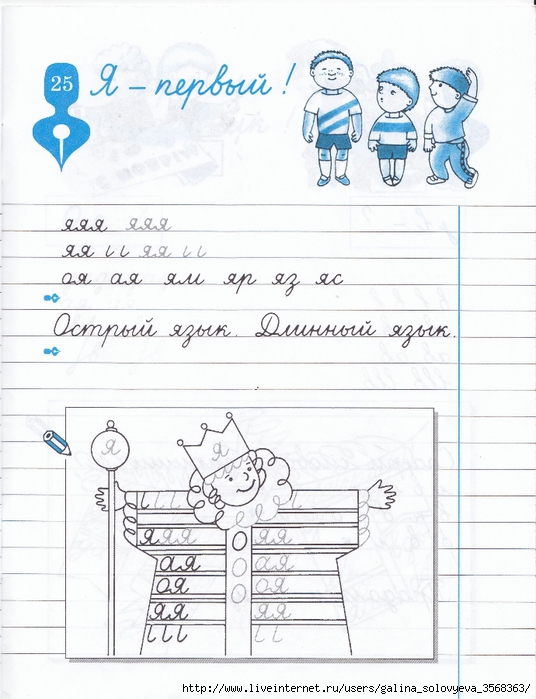 25
Я – первый!
яяя яяя
яя ι ι яя ι ι
оя ая ям яр яз яс
Острый язык. Длинный язык.
Я Я
ι ι ι ι
яяя яяя
ая ая
оя оя
яя яя
ι ι ι ι ι
http://www.liveinternet.ru/users/galina_solovyeva_3568363/